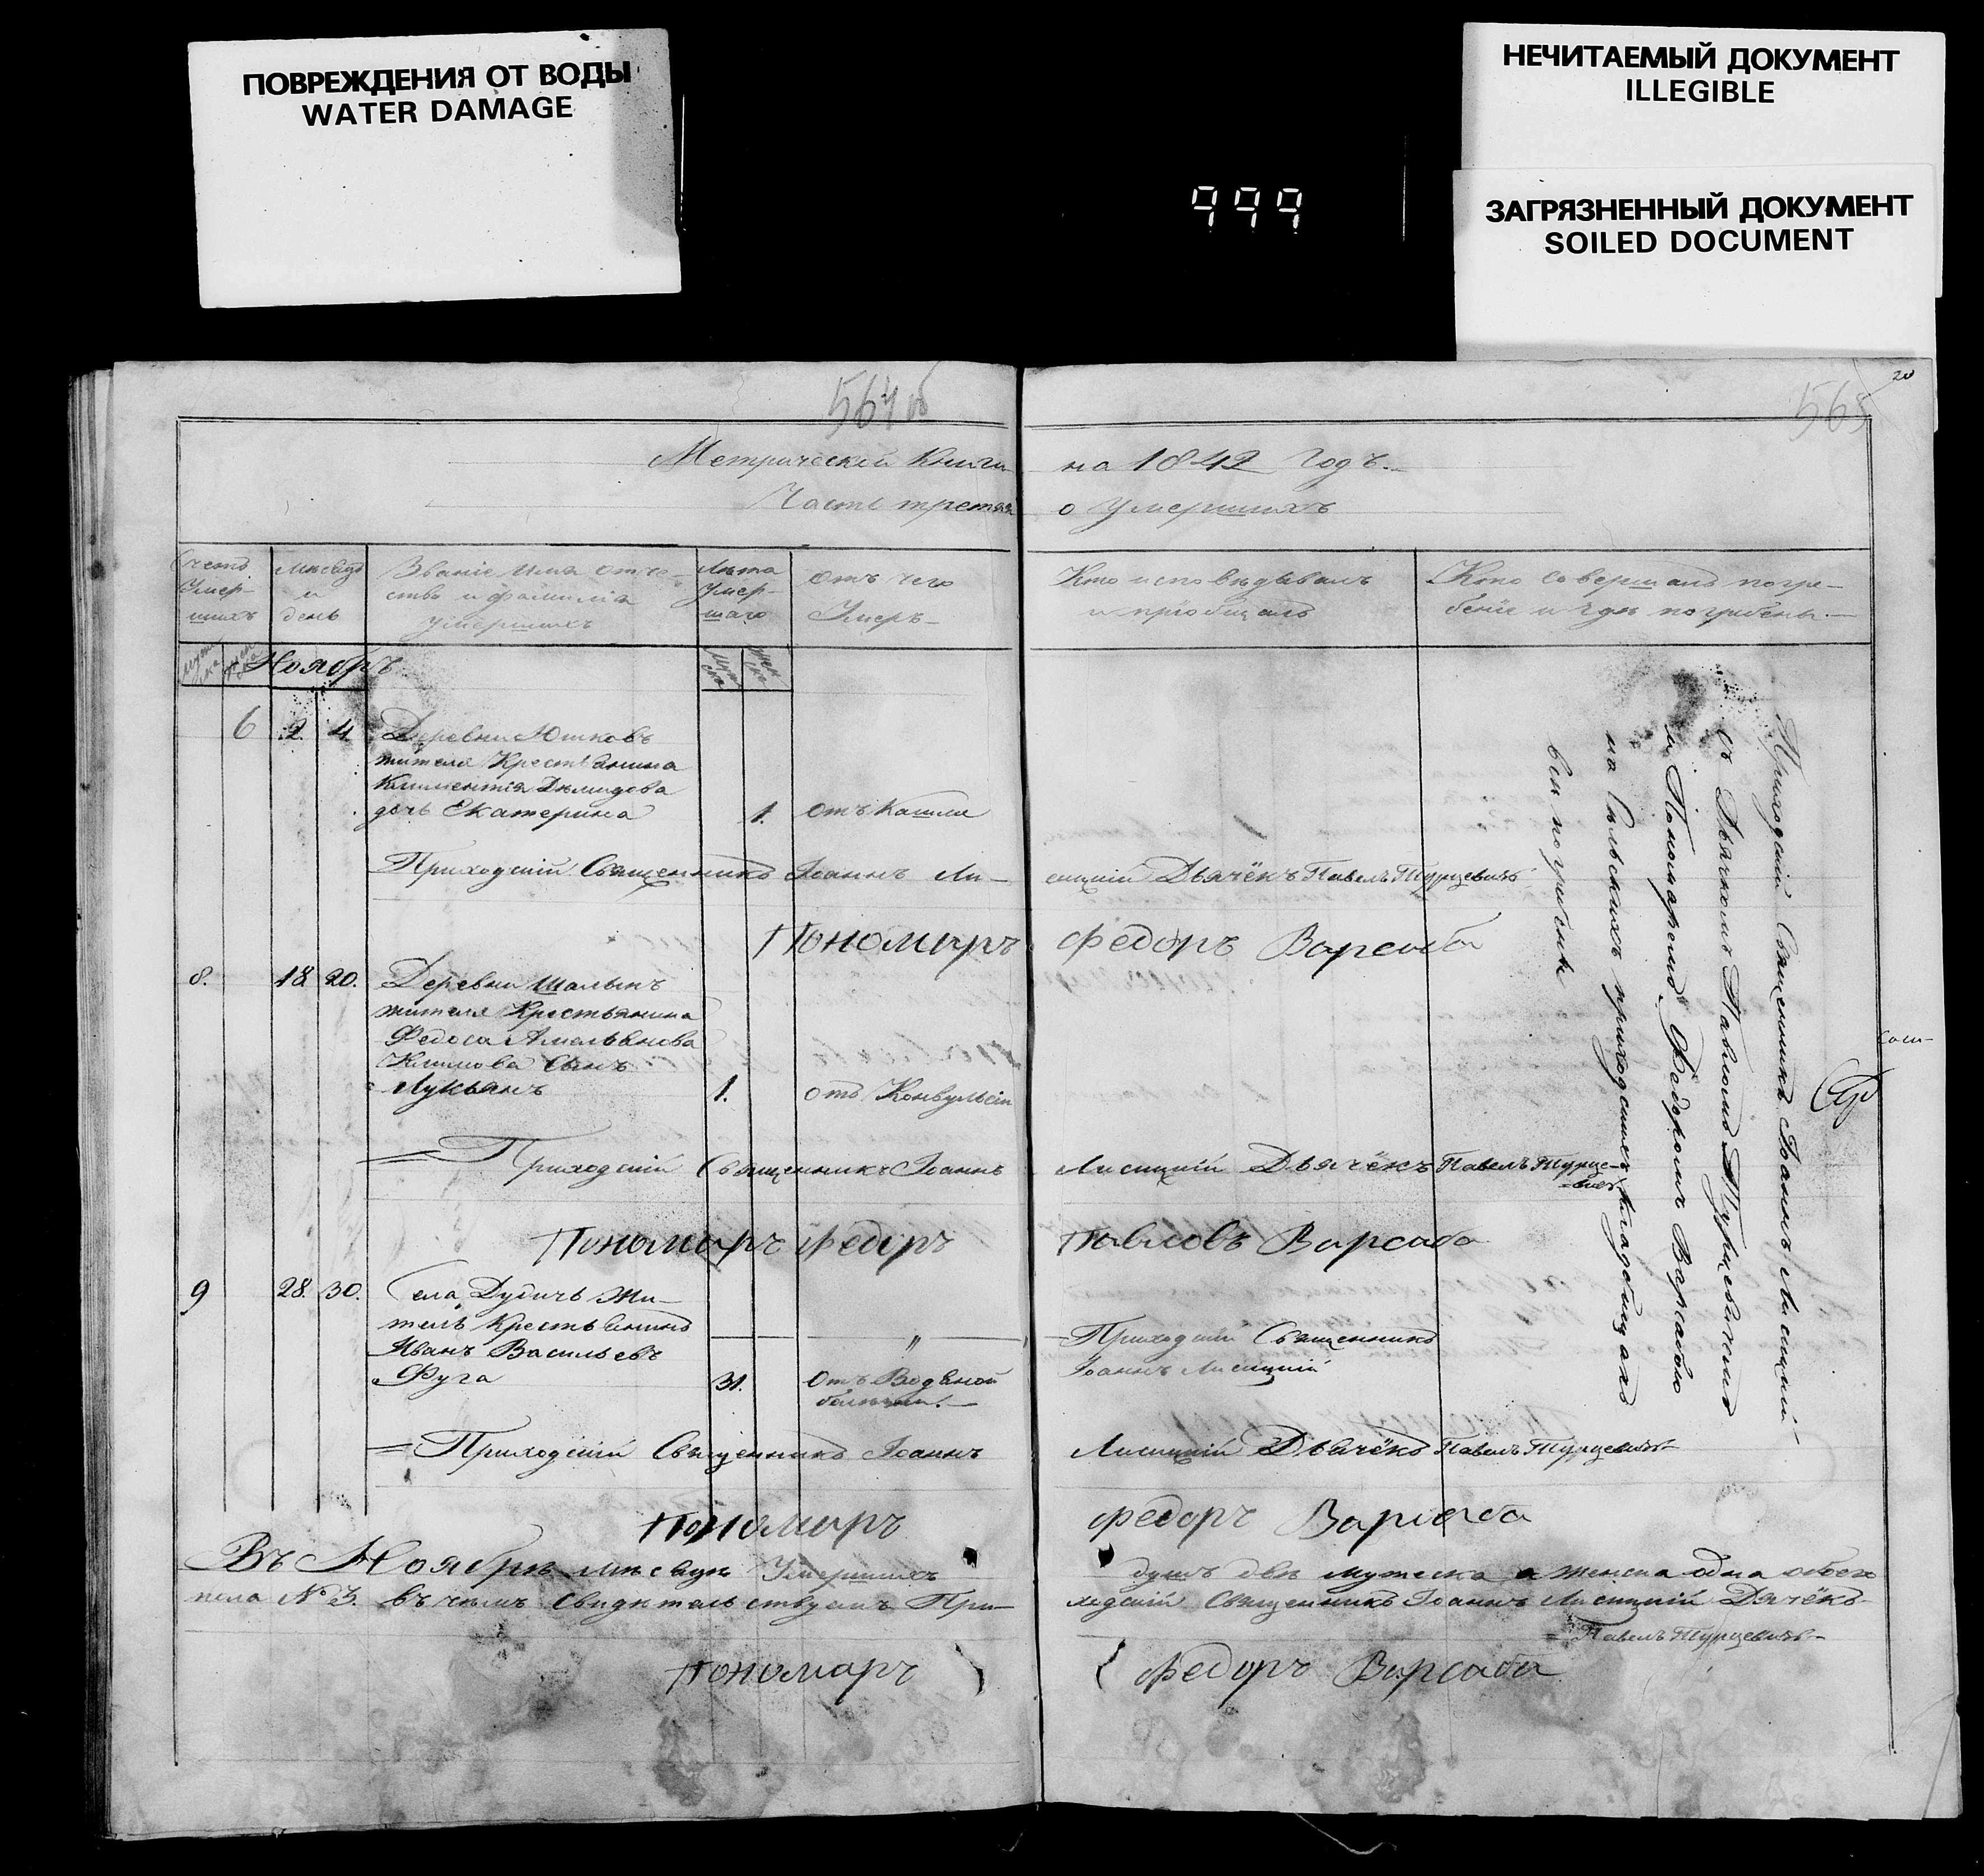 ПОВРЕЖДЕНИЯ ОТ ВОДЫ
WATER DAMAGE
НЕЧИТАЕМЫЙ ДОКУМЕНТ
ILLEGIBLE
ЗАГРЯЗНЕННЫЙ ДОКУМЕНТ
SOILED DOCUMENT
999
564 об
565
20
Метрической Книги на 1842 Годъ.
Часть третья о Умершихъ
Счетъ Умер-шихъ
Мѣсяцъ и день
Званіе Имя отче-ство и фамилія умершихъ
Лѣта Умер-шаго
Отъ чего Умеръ
Кто исповѣдывалъ и пріобщалъ
Кто Совершалъ погре-беніе и гдѣ погребены.
Ноябрь
6 2. 4 Деревни Юшковъ
жителя Крестьянина
Климентія Демидова
дочь Екатерина 1. отъ Кашля
Приходскій Священникъ Іоаннъ Ли-сицкій Дьячёкъ Павелъ Турцевичъ
Пономарь Федоръ Варсаба
8. 18 20. Деревни Шалынъ
жителя Крестьянина
Федоса Амельянова
Климова Сынъ
Лукьянъ 1. отъ Конвульсіи
Приходскій Священникъ Іоаннъ Лисицкій Дьячёкъ Павелъ Турце-
=вичъ
Пономарь Федоръ Павловъ Варсаба
9 28. 30. Села Дудичь Жи-
тель Крестьянинъ
Иванъ Васильевъ
Фуга 31. Отъ Водяной
болезни.
Приходскій Священникъ
Іоаннъ Лисицкій
=Приходскій Священникъ Іоаннъ Лисицкій Дьячёкъ Павелъ Турцевичъ
Пономарь Федоръ Варсаба
Приходскій Священникъ Іоаннъ Лисицкій
съ Дьячкомъ Павломъ Турцевичемъ
и Пономаремъ Федоромъ Варсабою
на Сельскихъ приходскихъ кладбищахъ
всѣ погребены
Въ Ноябрѣ мѣсяцѣ Умершихъ душъ двѣ мужеска а женска одна обоего
пола № 3. въ чемъ Свидѣтельствуемъ При-ходскій Священникъ Іоаннъ Лисицкій Дячёкъ
= Павелъ Турцевичъ
Пономарь Федоръ Варсаба